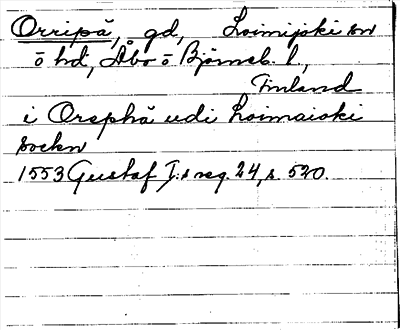 Orripä, gd, Loimijoki sn
ö hd, Åbo ö Björneb. l,
Finland
i Orephä udi Loimaioki
sockn
1553 Gustaf I:s reg. 24, s. 520.